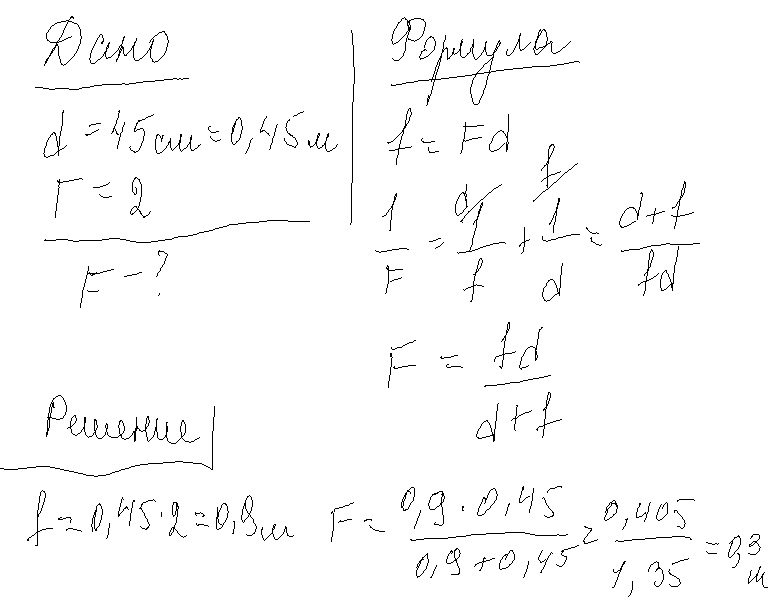 Дано
d = 45 см = 0,45 м
Г = 2
F - ?
Формула
f = Гd
1/F = 1/f + 1/d = d+f/fd
F = fd/d+f
Решение
f = 0,45 · 2 = 0,9 м
F = 0,9 · 0,45/0,9 + 0,45 = 0,405/1,35 = 0,3 м